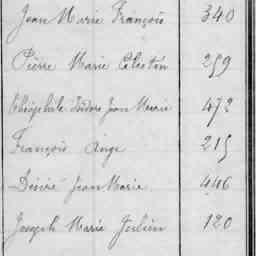 Jean Marie François 340
Pierre Marie Célestin 259
Théophile Isidore Jean Marie 472
François Ange 215
Désiré Jean Marie 446
Joseph Marie Julien 120